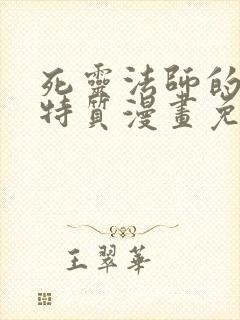 死靈法師的
特質漫畫免
王翠華